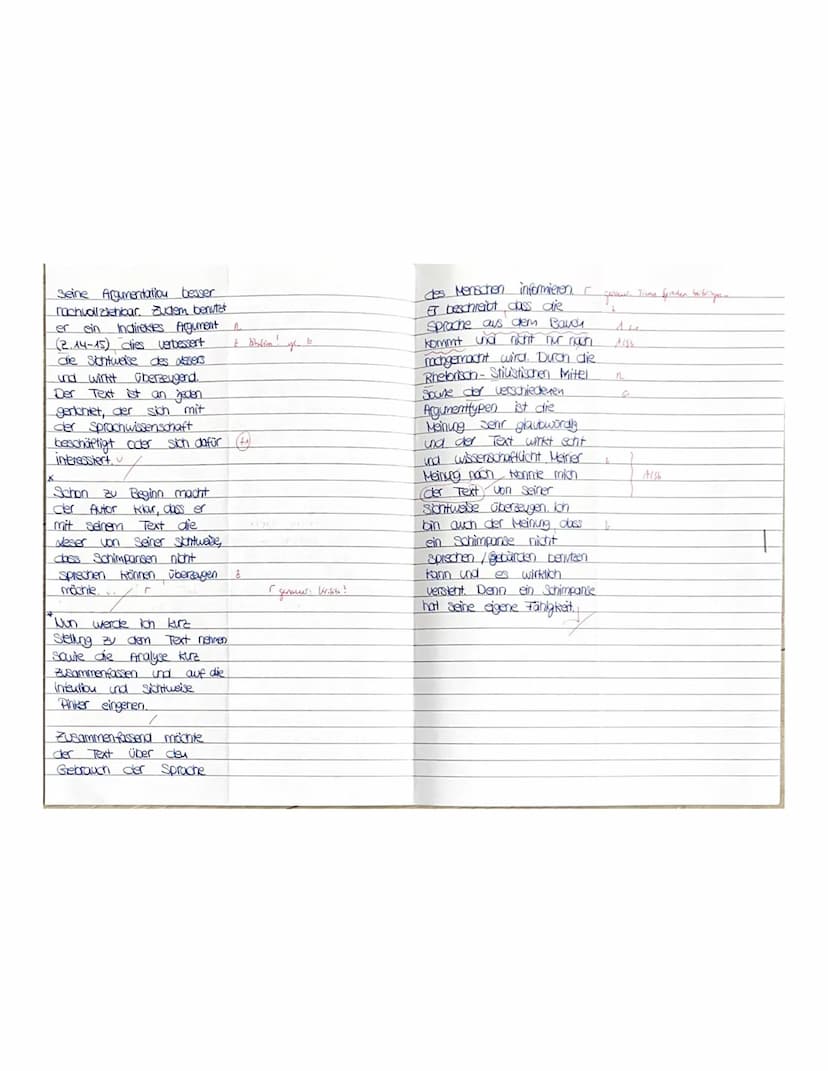 Seine Argumentation besser
nachvollziehbar. Zudem benutzt
er ein indirektes Argument
(Z.14-15) dies verbessert
die Sichtweise des Lesers
und wirkt überzeugend.
Der Text ist an jeden
gerichtet, der sich mit
der Sprachwissenschaft
beschäftigt oder sich dafür
interessiert.
Schon zu Beginn macht
der Autor klar, dass er
mit seinem Text die
Leser von seiner Sichtweise,
dass Schimpansen nicht
sprechen können, überzeugen
möchte...
Γ genauer!
Nun werde ich kurz
Stellung zu dem Text nehmen
sowie die Analyse kurz
zusammenfassen und auf die
Intention und Sichtweise
Pinker eingehen.
Zusammenfassend möchte
der Text über den
Gebrauch der Sprache
des Menschen informieren.
Er beschreibt, dass die
Sprache aus dem Bauch
kommt und nicht nur nach
nachgemacht wird. Durch die
Rhetorisch-Stilistischen Mittel
sowie der verschiedenen
Argumenttypen ist die
Meinung sehr glaubwürdig
und der Text wirkt echt
und wissenschaftlicht. Meiner
Meinung nach, konnte mich
der Text von seiner
Sichtweise überzeugen. Ich
bin auch der Meinung dass
ein Schimpanse nicht
Sprechen / Gebärden benutzen
kann und es wirklich
versteht. Denn ein Schimpanse
hat seine eigene Fähigkeit.